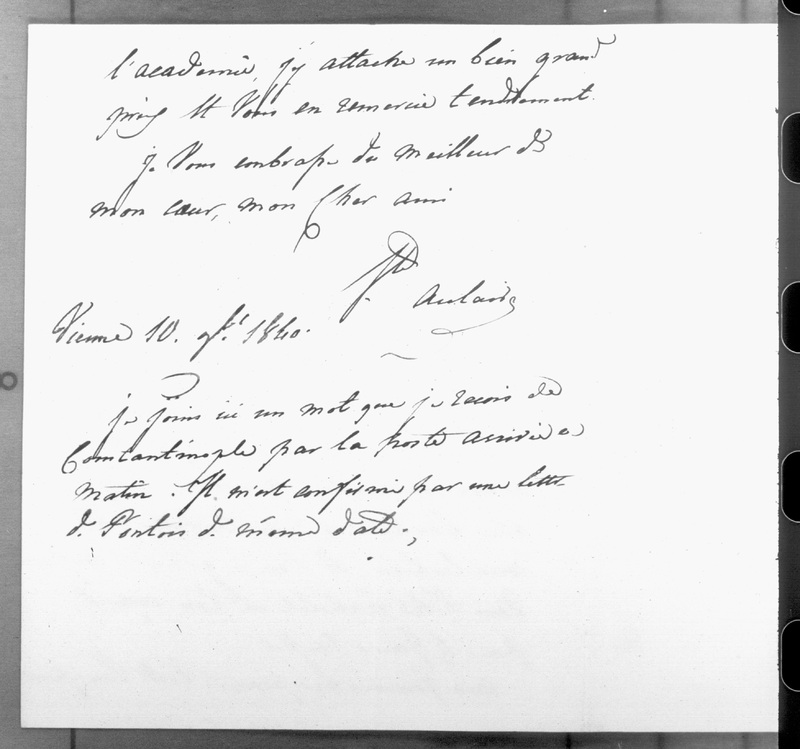 l'academie, j'y attache un bien grand
prix Et Vous en remercie tendrement.
je Vous embrasse du meilleur de
mon cœur, mon Cher ami
Ste Aulaire
Vienne 10. 9bre 1840.
je joins ici un mot que je recois de
Constantinople par la poste arrivée ce
matin. Il m'est confirmé par une lettre
de Pontois de même date.